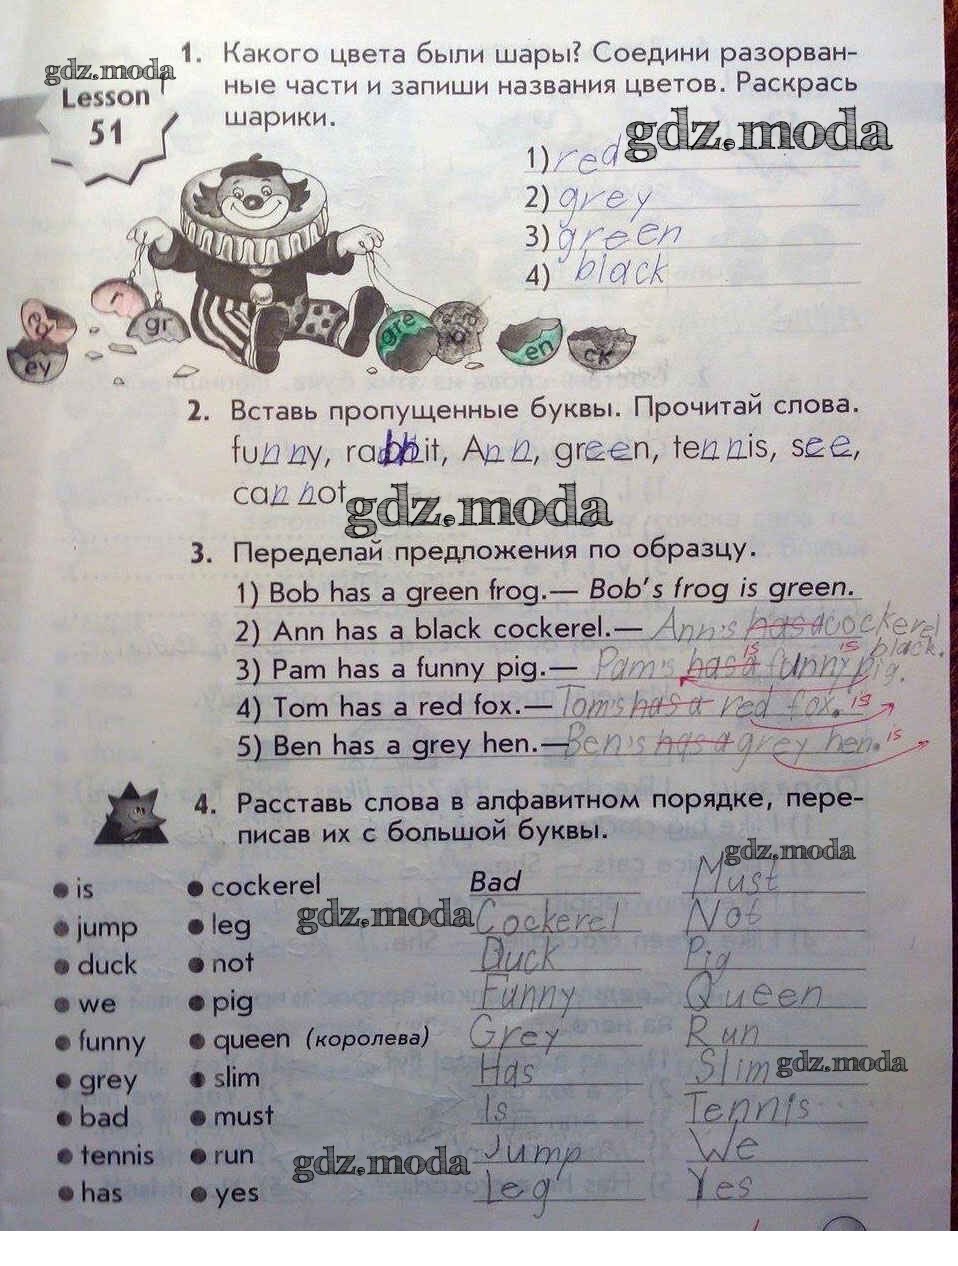 gdz.moda
Lesson
51
1. Какого цвета были шары? Соедини разорван-
ные части и запиши названия цветов. Раскрась
шарики.
gdz.moda
1) red
2) grey
3) green
4) black
r
gr
ey
gre
en
ck
2. Вставь пропущенные буквы. Прочитай слова.
funny, rabbit, Ann, green, tennis, see,
cannot
gdz.moda
3. Переделай предложения по образцу.
1) Bob has a green frog.— Bob's frog is green.
2) Ann has a black cockerel.— Ann's has a cockerel is black.
3) Pam has a funny pig.— Pam's has a is funny pig.
4) Tom has a red fox.— Tom's has a red fox. is
5) Ben has a grey hen.— Ben's has a grey hen. is
4. Расставь слова в алфавитном порядке, пере-
писав их с большой буквы.
gdz.moda
is cockerel Bad Must
jump leg gdz.moda Cockerel Not
duck not Duck Pig
we pig Funny Queen
funny queen (королева) Grey Run
grey slim Has Slim gdz.moda
bad must Is Tennis
tennis run gdz.moda Jump We
has yes Leg Yes